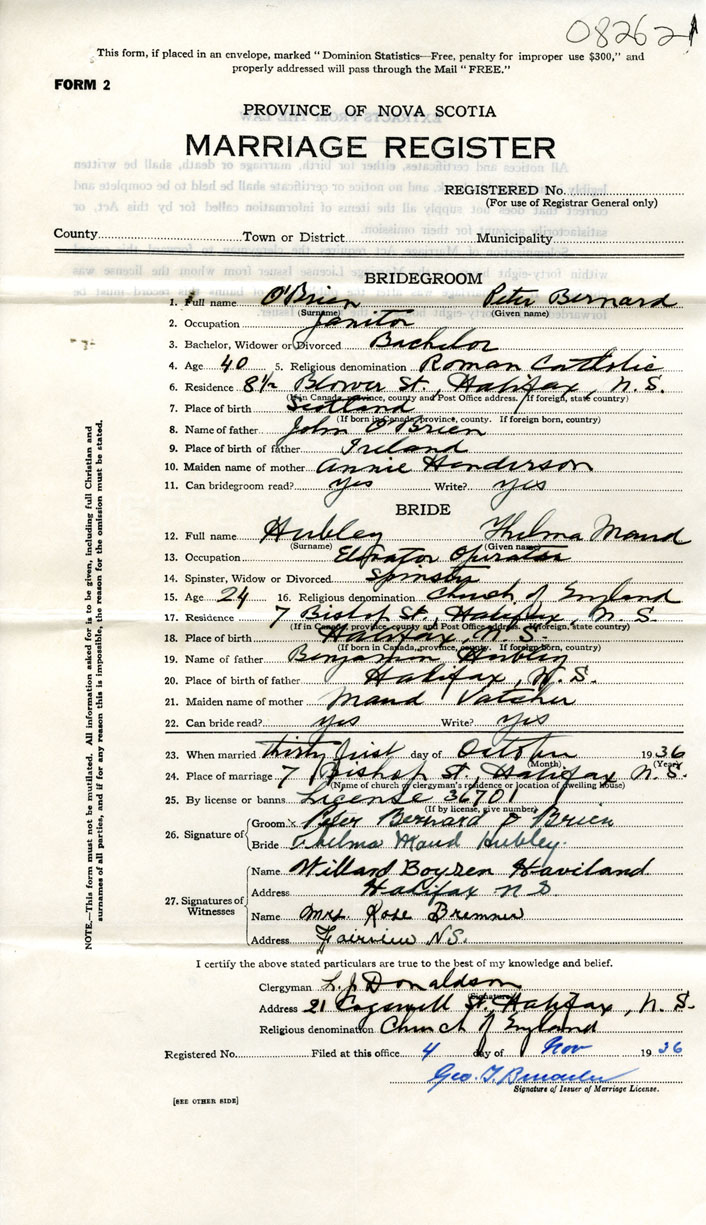 08262
This form, if placed in an envelope, marked "Dominion Statistics—Free, penalty for improper use $300," and
properly addressed will pass through the Mail "FREE."
FORM 2
PROVINCE OF NOVA SCOTIA
MARRIAGE REGISTER
REGISTERED No.
(For use of Registrar General only)
County Town or District Municipality
BRIDEGROOM
1. Full name O'Brien Peter Bernard
(Surname) (Given name)
2. Occupation Janitor
3. Bachelor, Widower or Divorced Bachelor
4. Age 40 5. Religious denomination Roman Catholic
6. Residence 8½ Blower St., Halifax, N.S.
(If in Canada, province, county and Post Office address. If foreign, state country)
7. Place of birth Scotland
(If born in Canada, province, county. If foreign born, country)
8. Name of father John O'Brien
9. Place of birth of father Ireland
10. Maiden name of mother Annie Henderson
11. Can bridegroom read? yes Write? yes
BRIDE
12. Full name Hubley Thelma Maud
(Surname) (Given name)
13. Occupation Elevator Operator
14. Spinster, Widow or Divorced Spinster
15. Age 24 16. Religious denomination Church of England
17. Residence 7 Bishop St., Halifax, N.S.
(If in Canada, province, county and Post Office address. If foreign, state country)
18. Place of birth Halifax, N.S.
(If born in Canada, province, county. If foreign born, country)
19. Name of father Benjamin Hubley
20. Place of birth of father Halifax, N.S.
21. Maiden name of mother Maud Vatcher
22. Can bride read? yes Write? yes
23. When married thirty first day of October 1936
(Month) (Year)
24. Place of marriage 7 Bishop St., Halifax N.S.
(Name of church or clergyman's residence or location of dwelling house)
25. By license or banns License 36701
(If by license, give number)
26. Signature of Groom x Peter Bernard O Brien
Bride Thelma Maud Hubley.
27. Signatures of Witnesses Name Willard Boyzen Haviland
Address Halifax N S
Name Mrs. Rose Bremner
Address Fairview N.S.
I certify the above stated particulars are true to the best of my knowledge and belief.
Clergyman L. J. Donaldson
(Signature)
Address 21 Cogswell St, Halifax, N.S.
Religious denomination Church of England
Registered No. Filed at this office 4 day of Nov 1936
Geo. T.
Signature of Issuer of Marriage License.
[SEE OTHER SIDE]
NOTE.—This form must not be mutilated. All information asked for is to be given, including full Christian and
surnames of all parties, and if for any reason this is impossible, the reason for the omission must be stated.